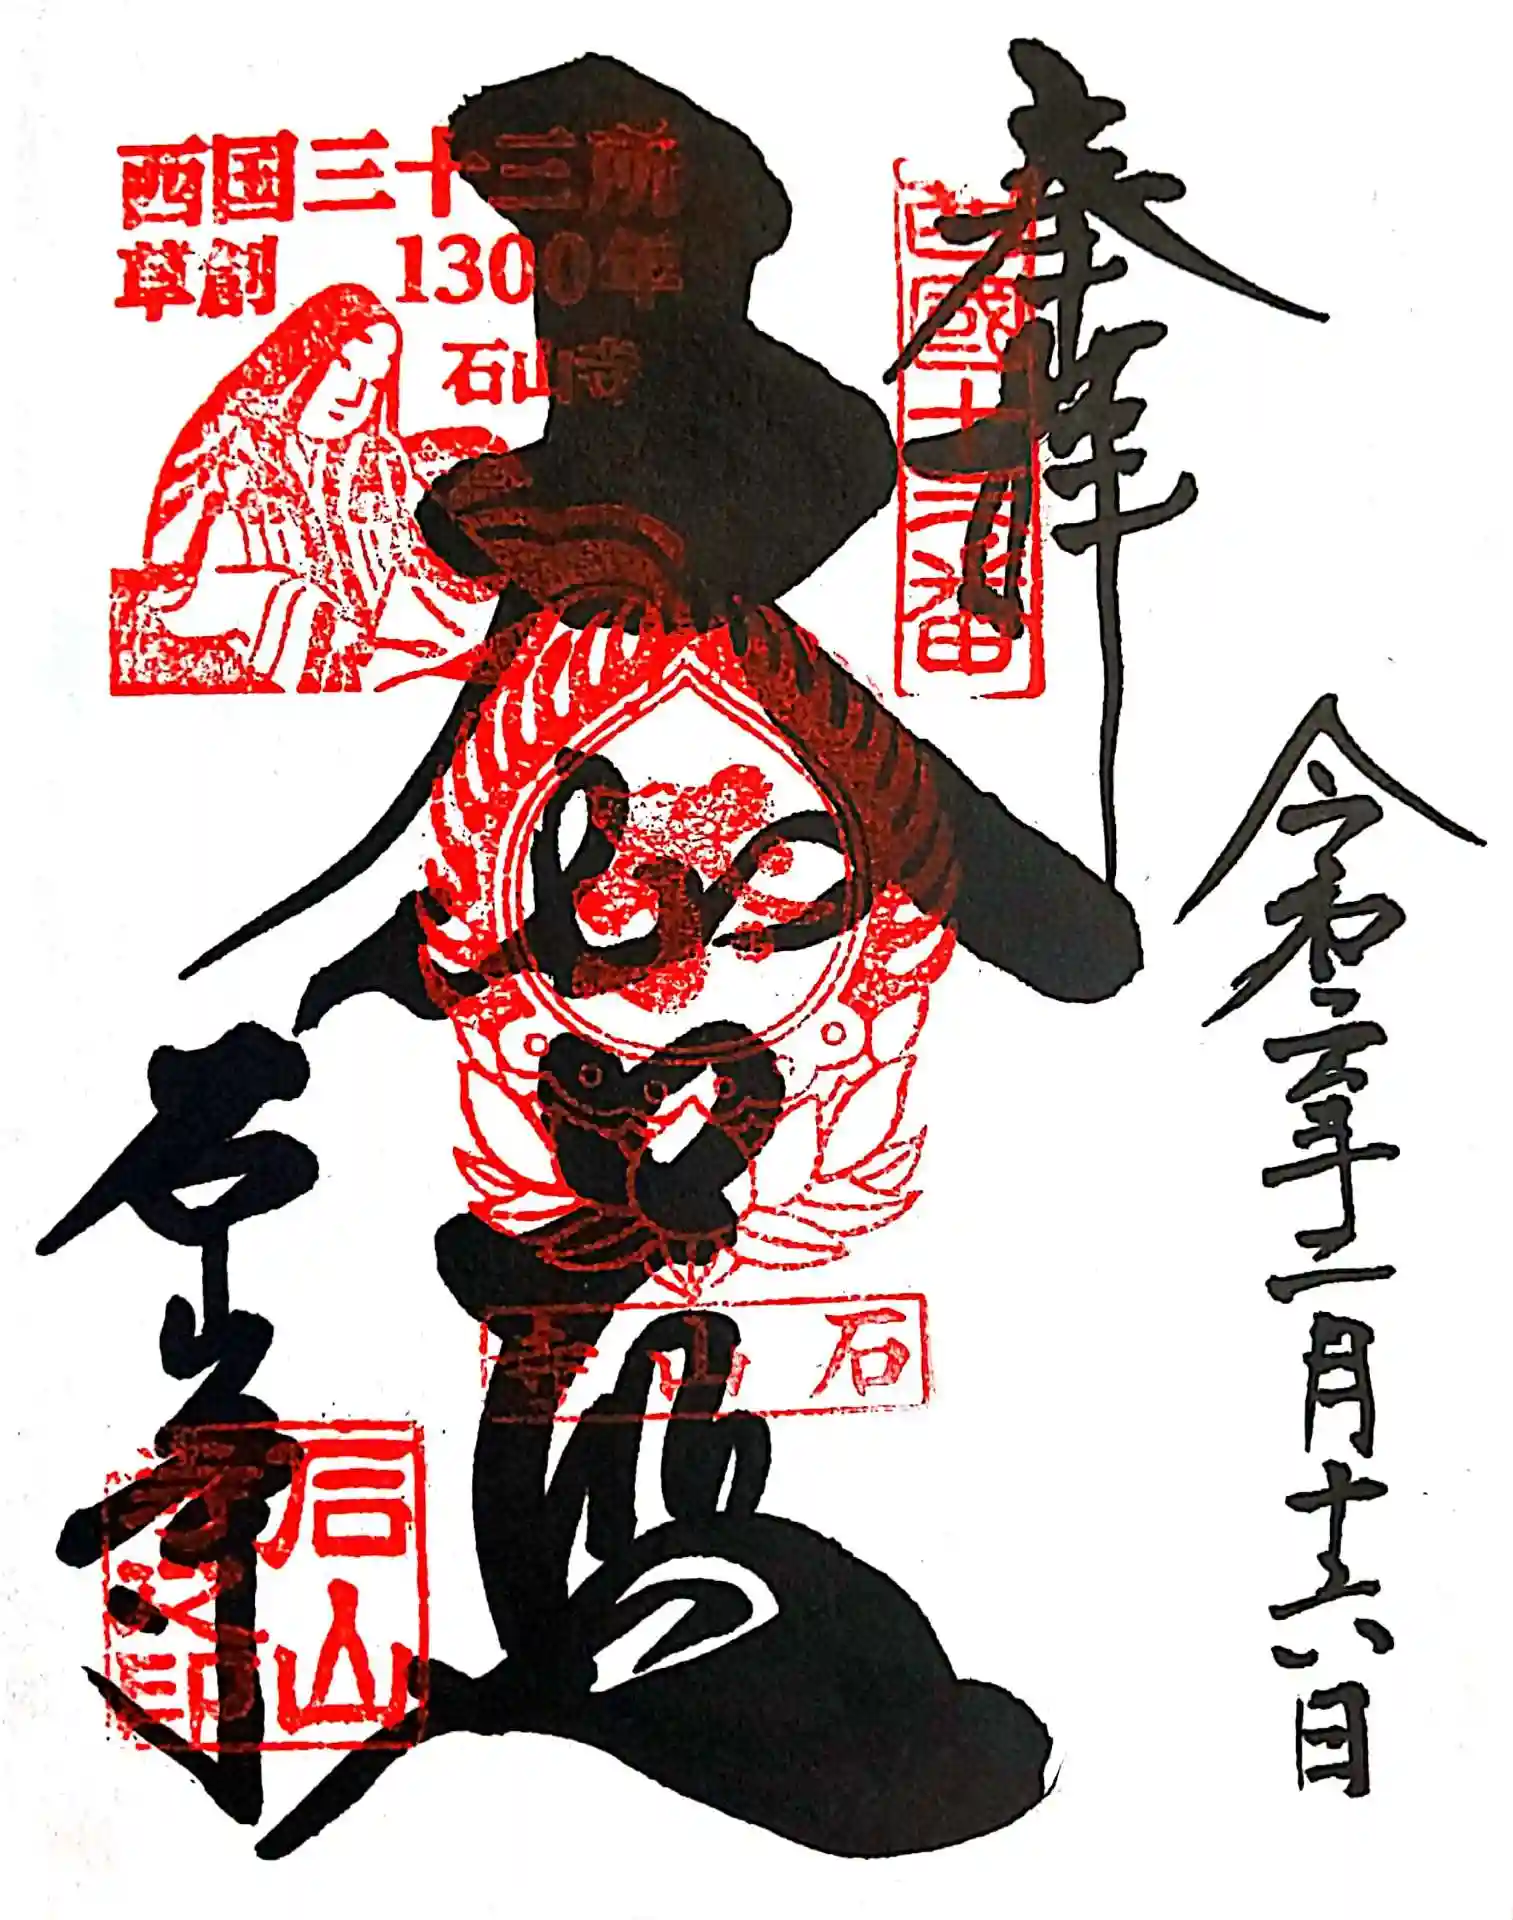 奉拝
西國十三番
令和三年二月十六日
大伽藍
石山寺
西国三十三所
草創 1300年
石山寺
石山寺
石山寺之印